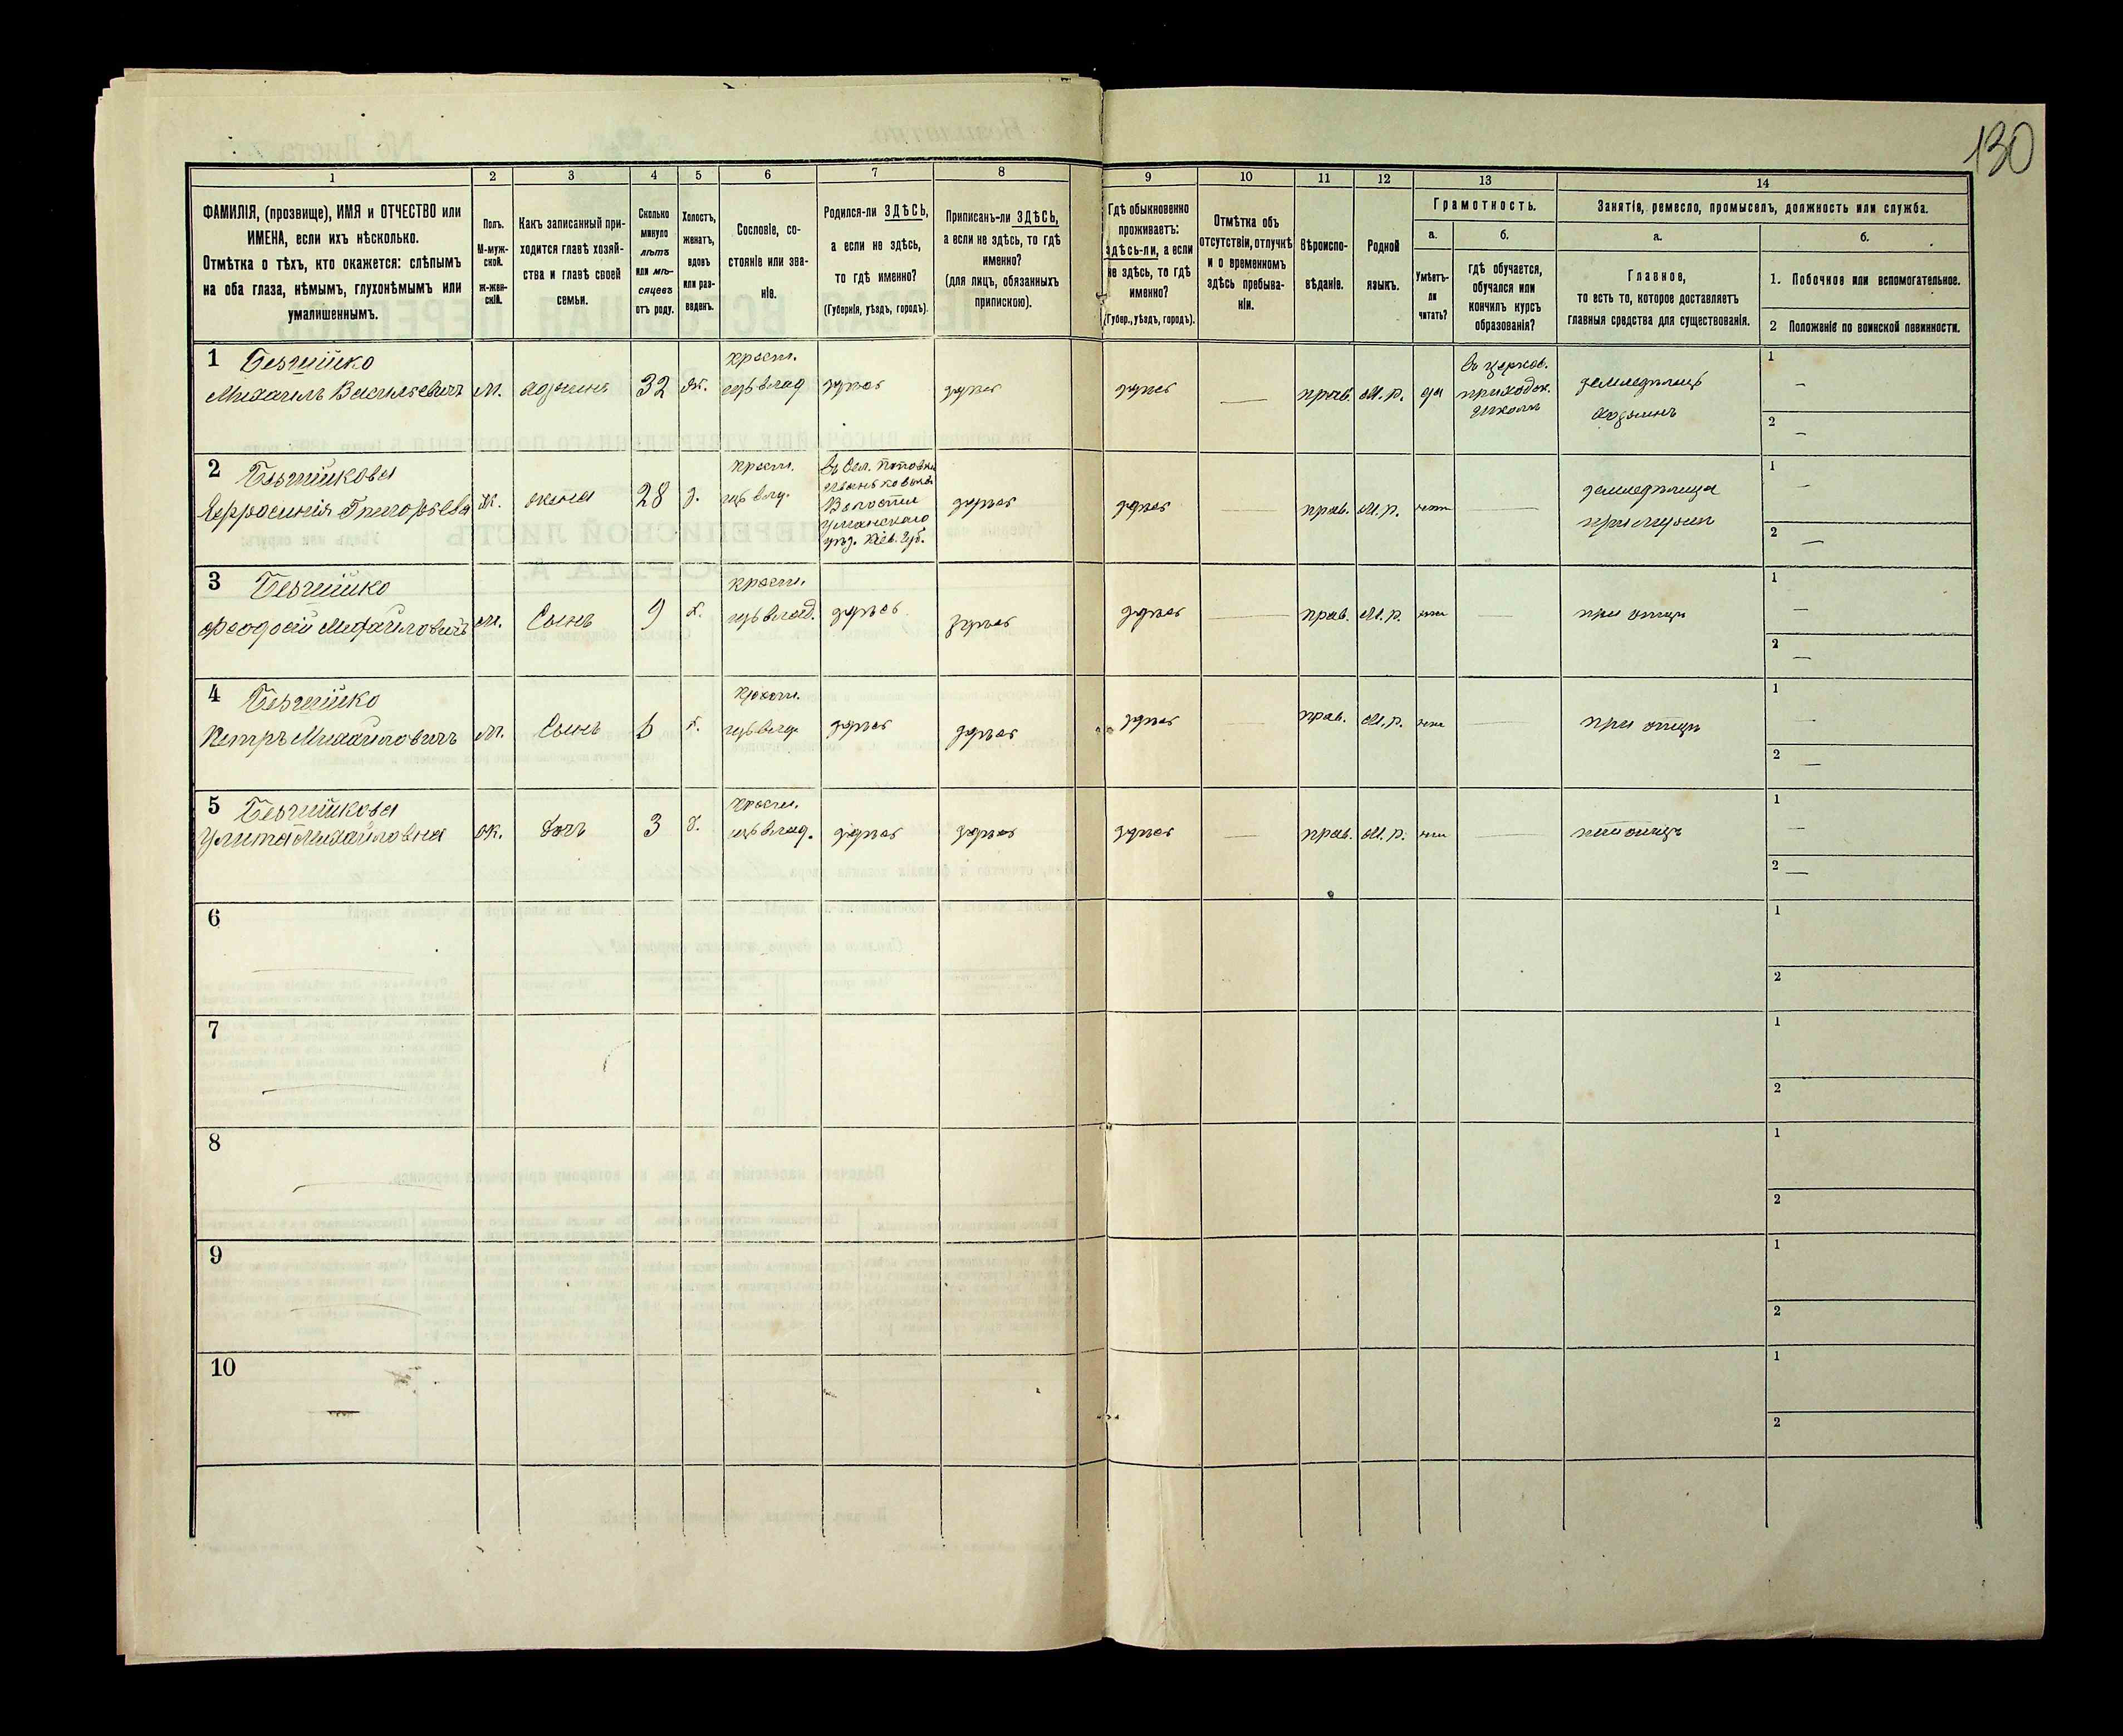 130
1
2
3
4
5
6
7
8
9
10
11
12
13
14
ФАМИЛІЯ, (прозвище), ИМЯ и ОТЧЕСТВО или
ИМЕНА, если ихъ нѣсколько.
Отмѣтка о тѣхъ, кто окажется: слѣпымъ
на оба глаза, нѣмымъ, глухонѣмымъ или
умалишеннымъ.
Полъ.
М-муж-
ской.
ж-жен-
скій.
Какъ записанный при-
ходится главѣ хозяй-
ства и главѣ своей
семьи.
Сколько
минуло
лѣтъ
или мѣ-
сяцевъ
отъ роду.
Холостъ,
женатъ,
вдовъ
или раз-
веденъ.
Сословіе, со-
стояніе или зва-
ніе.
Родился-ли ЗДѢСЬ,
а если не здѣсь,
то гдѣ именно?
(Губернія, уѣздъ, городъ).
Приписанъ-ли ЗДѢСЬ,
а если не здѣсь, то гдѣ
именно?
(для лицъ, обязанныхъ
припискою).
Гдѣ обыкновенно
проживаетъ:
здѣсь-ли, а если
не здѣсь, то гдѣ
именно?
(Губер., уѣздъ, городъ).
Отмѣтка объ
отсутствіи, отлучкѣ
и о временномъ
здѣсь пребыва-
ніи.
Вѣроиспо-
вѣданіе.
Родной
языкъ.
Грамотность.
а.
Умѣетъ-
ли
читать?
б.
гдѣ обучается,
обучался или
кончилъ курсъ
образованія?
Занятіе, ремесло, промыселъ, должность или служба.
а.
Главное,
то есть то, которое доставляетъ
главныя средства для существованія.
б.
1. Побочное или вспомогательное.
2 Положеніе по воинской повинности.
1
Михаилъ Васильевичъ
м.
хозяинъ
32
ж.
крест.
здѣсь
здѣсь
здѣсь
—
прав.
М. р.
да
въ церков.
приходск.
школѣ
земледѣлецъ
хозяинъ
1
—
2
—
2
Григорьева
ж.
жена
28
з.
крест.
въ Сел.
Волости
Уманскаго
уѣз. Кіев. Губ.
здѣсь
здѣсь
—
прав.
М. р.
нѣтъ
—
земледѣлица
при мужѣ
1
—
2
—
3
Феодосій Михайловичъ
м.
Сынъ
9
х.
крест.
здѣсь
здѣсь
здѣсь
—
прав.
М. р.
нѣтъ
—
при отцѣ
1
—
2
—
4
Петръ Михайловичъ
м.
Сынъ
6
х.
крест.
здѣсь
здѣсь
здѣсь
—
прав.
М. р.
нѣтъ
—
при отцѣ
1
—
2
—
5
Улита Михайловна
ж.
дочь
3
д.
крест.
здѣсь
здѣсь
здѣсь
—
прав.
М. р.
нѣтъ
—
при отцѣ
1
—
2
—
6
1
2
7
1
2
8
1
2
9
1
2
10
1
2